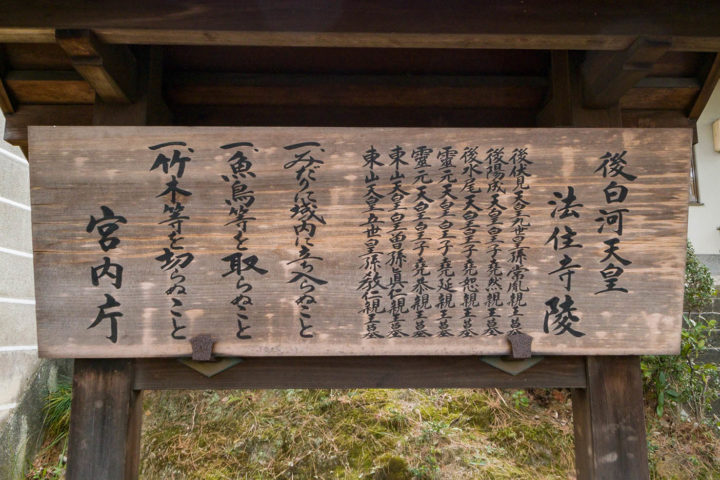 後白河天皇
法住寺陵
後伏見天皇五世皇孫常胤親王墓
後陽成天皇皇子堯然親王墓
後水尾天皇皇子堯恕親王墓
靈元天皇皇子堯延親王墓
靈元天皇皇子堯恭親王墓
東山天皇皇曽孫眞仁親王墓
東山天皇五世皇孫教仁親王墓
一、みだりに域内に立ち入らぬこと
一、魚鳥等を取らぬこと
一、竹木等を切らぬこと
宮内庁